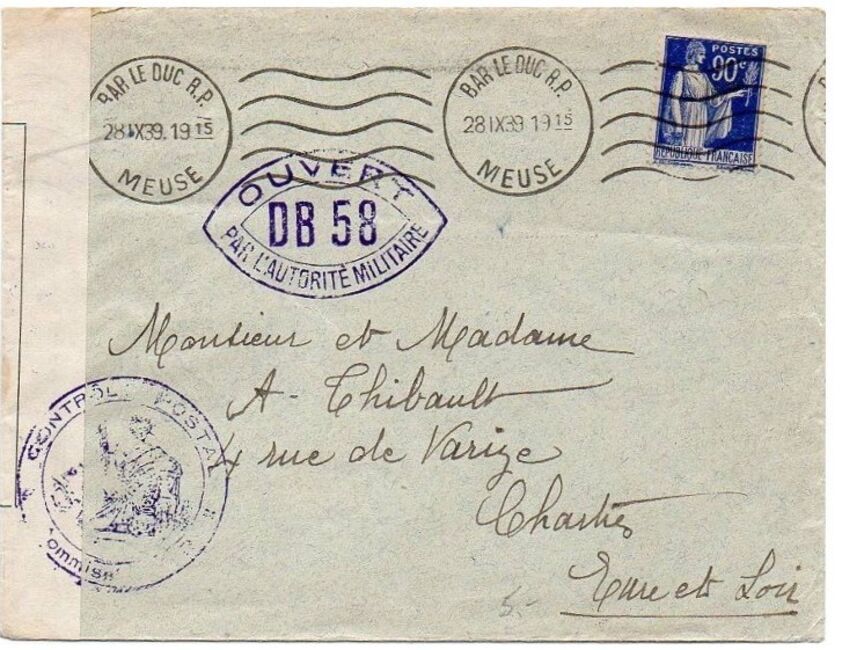 BAR LE DUC R.P.
28 IX 39. 19 15
MEUSE
BAR LE DUC R.P.
28 IX 39 19 15
MEUSE
POSTES
90c
REPUBLIQUE FRANÇAISE
OUVERT
DB 58
PAR L'AUTORITÉ MILITAIRE
Monsieur et Madame
A- Thibault
4 rue de Varize
Chartres
Eure et Loir
CONTRÔLE POSTAL
5.-